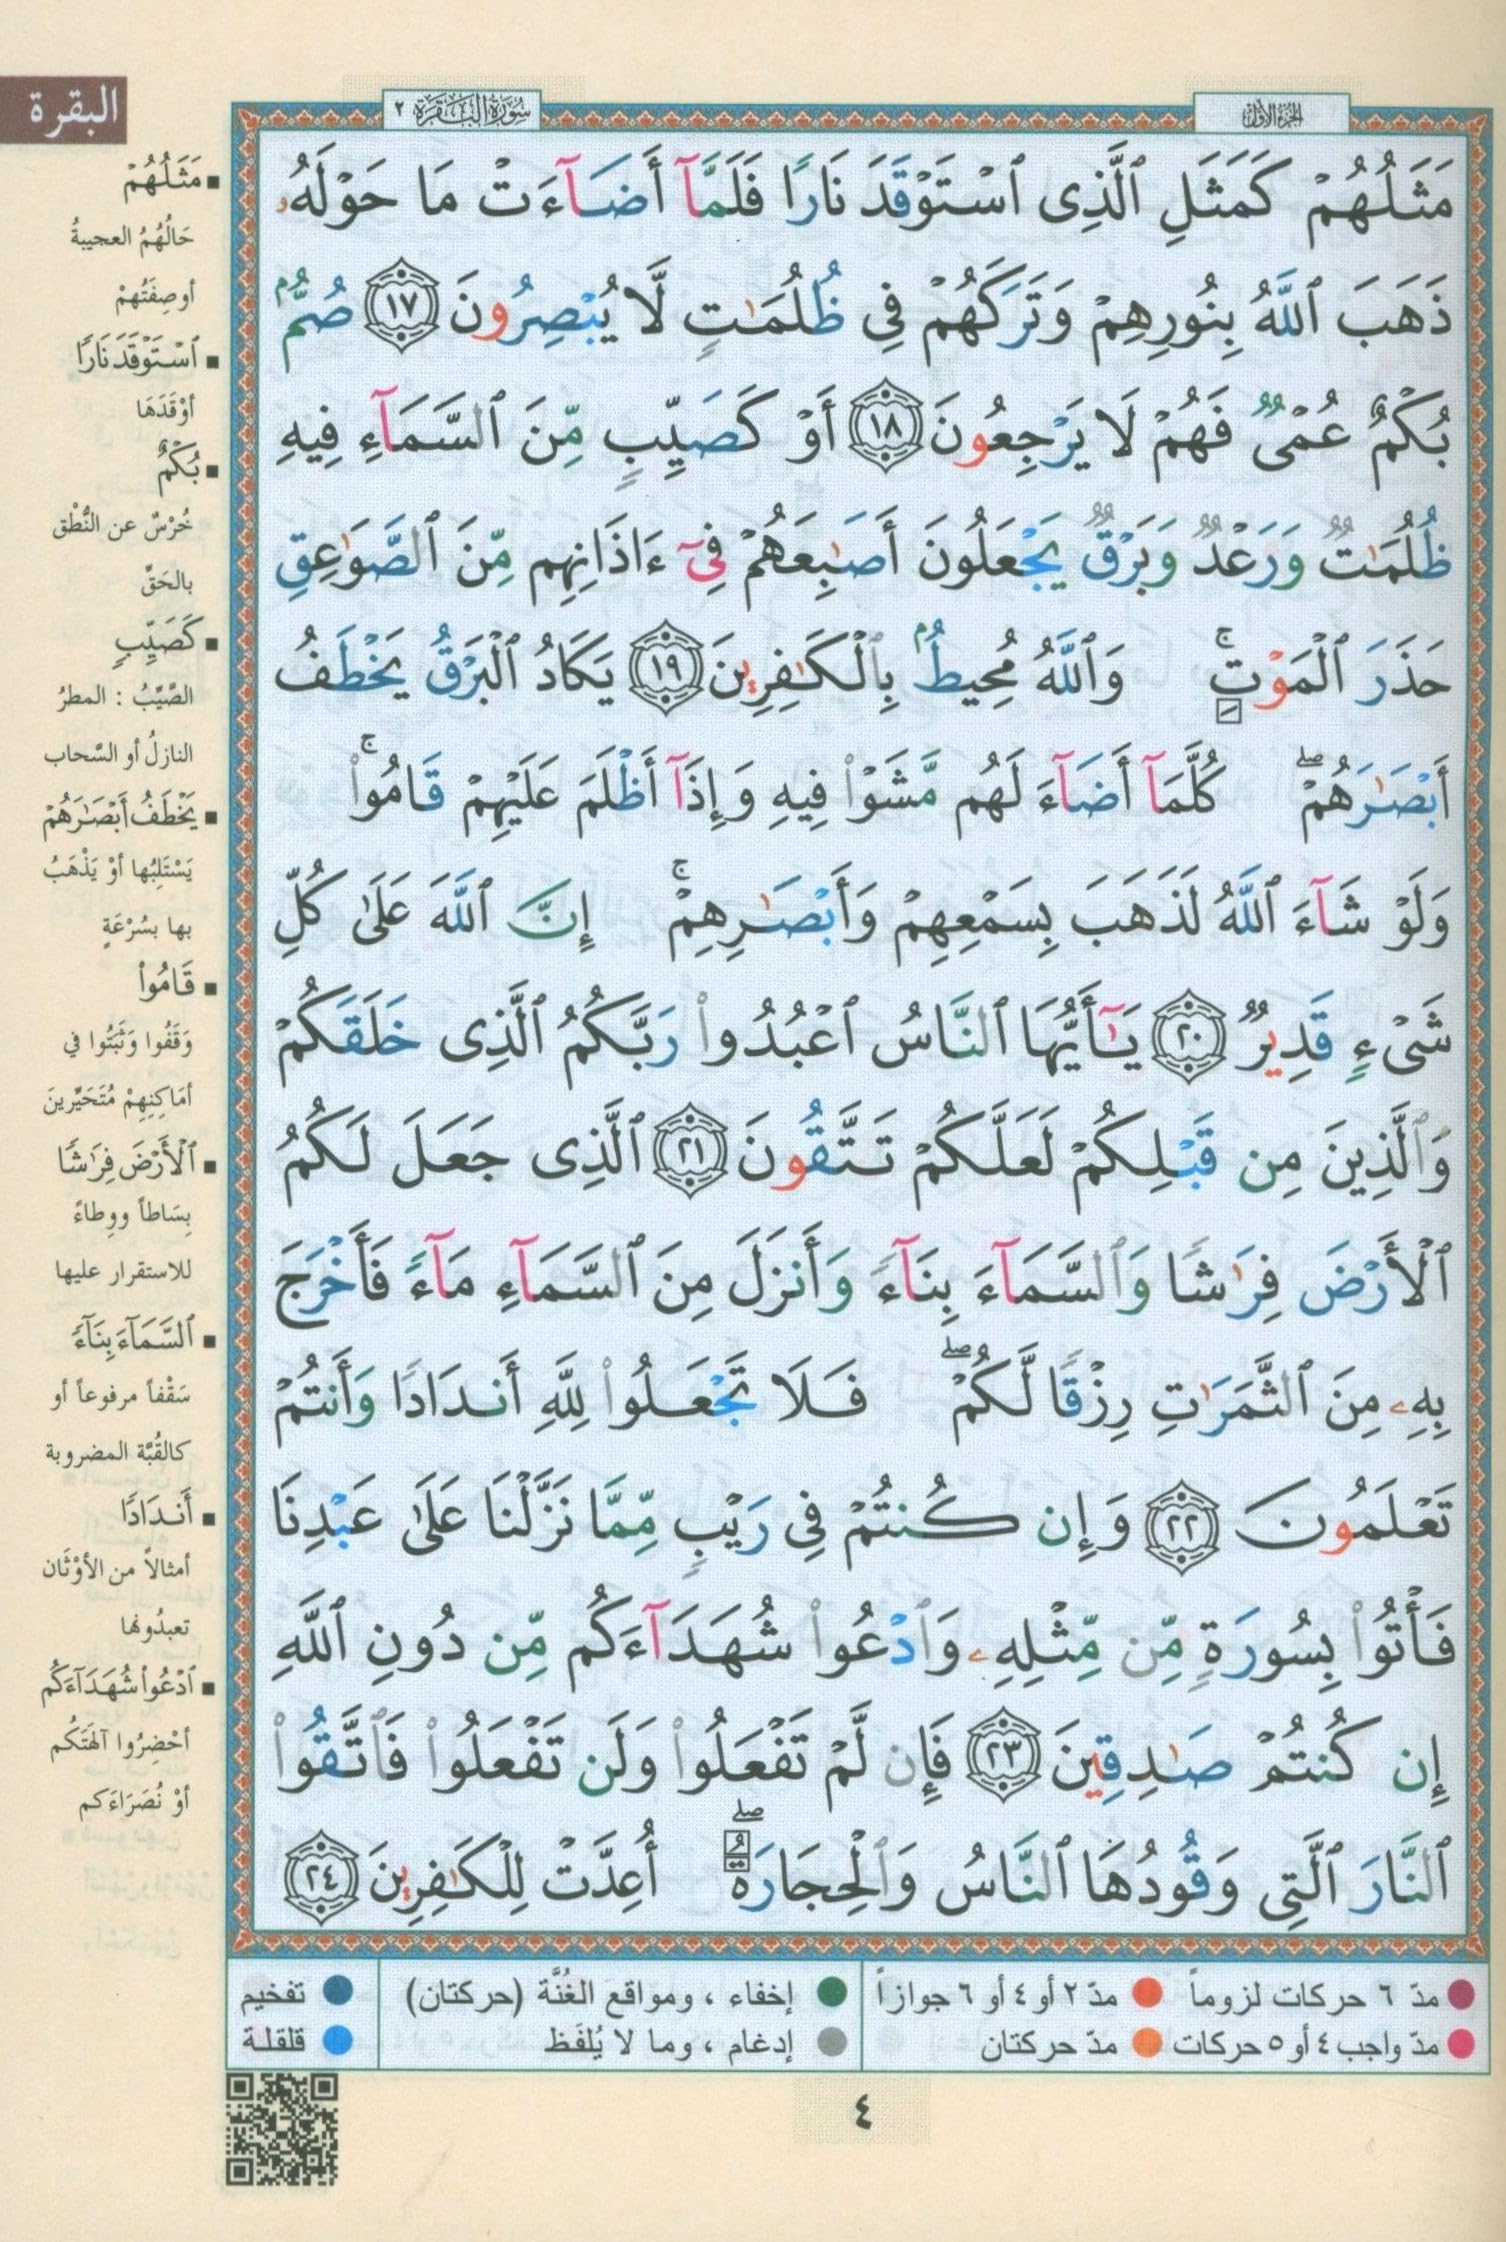 البقرة
سُورَةُ البَقَرَة ٢
الجزء الأول
مَثَلُهُمْ كَمَثَلِ ٱلَّذِى ٱسْتَوْقَدَ نَارًا فَلَمَّآ أَضَآءَتْ مَا حَوْلَهُۥ
ذَهَبَ ٱللَّهُ بِنُورِهِمْ وَتَرَكَهُمْ فِى ظُلُمَٰتٍ لَّا يُبْصِرُونَ ١٧ صُمٌّۢ
بُكْمٌ عُمْىٌ فَهُمْ لَا يَرْجِعُونَ ١٨ أَوْ كَصَيِّبٍ مِّنَ ٱلسَّمَآءِ فِيهِ
ظُلُمَٰتٌ وَرَعْدٌ وَبَرْقٌ يَجْعَلُونَ أَصَٰبِعَهُمْ فِىٓ ءَاذَانِهِم مِّنَ ٱلصَّوَٰعِقِ
حَذَرَ ٱلْمَوْتِ ۚ وَٱللَّهُ مُحِيطٌۢ بِٱلْكَٰفِرِينَ ١٩ يَكَادُ ٱلْبَرْقُ يَخْطَفُ
أَبْصَٰرَهُمْ ۖ كُلَّمَآ أَضَآءَ لَهُم مَّشَوْا۟ فِيهِ وَإِذَآ أَظْلَمَ عَلَيْهِمْ قَامُوا۟ ۚ
وَلَوْ شَآءَ ٱللَّهُ لَذَهَبَ بِسَمْعِهِمْ وَأَبْصَٰرِهِمْ ۚ إِنَّ ٱللَّهَ عَلَىٰ كُلِّ
شَىْءٍ قَدِيرٌ ٢٠ يَٰٓأَيُّهَا ٱلنَّاسُ ٱعْبُدُوا۟ رَبَّكُمُ ٱلَّذِى خَلَقَكُمْ
وَٱلَّذِينَ مِن قَبْلِكُمْ لَعَلَّكُمْ تَتَّقُونَ ٢١ ٱلَّذِى جَعَلَ لَكُمُ
ٱلْأَرْضَ فِرَٰشًا وَٱلسَّمَآءَ بِنَآءً وَأَنزَلَ مِنَ ٱلسَّمَآءِ مَآءً فَأَخْرَجَ
بِهِۦ مِنَ ٱلثَّمَرَٰتِ رِزْقًا لَّكُمْ ۖ فَلَا تَجْعَلُوا۟ لِلَّهِ أَندَادًا وَأَنتُمْ
تَعْلَمُونَ ٢٢ وَإِن كُنتُمْ فِى رَيْبٍ مِّمَّا نَزَّلْنَا عَلَىٰ عَبْدِنَا
فَأْتُوا۟ بِسُورَةٍ مِّن مِّثْلِهِۦ وَٱدْعُوا۟ شُهَدَآءَكُم مِّن دُونِ ٱللَّهِ
إِن كُنتُمْ صَٰدِقِينَ ٢٣ فَإِن لَّمْ تَفْعَلُوا۟ وَلَن تَفْعَلُوا۟ فَٱتَّقُوا۟
ٱلنَّارَ ٱلَّتِى وَقُودُهَا ٱلنَّاسُ وَٱلْحِجَارَةُ ۖ أُعِدَّتْ لِلْكَٰفِرِينَ ٢٤
مَثَلُهُمْ
حَالُهُمُ العجيبةُ
أو صِفَتُهمْ
ٱسْتَوْقَدَ نَارًا
أوْقَدَهَا
بُكْمٌ
خُرْسٌ عن النُّطْق
بالحَقِّ
كَصَيِّبٍ
الصَّيِّبُ : المطرُ
النازلُ أو السَّحاب
يَخْطَفُ أَبْصَٰرَهُمْ
يَسْتَلِبُها أوْ يَذْهَبُ
بها بسُرْعَةٍ
قَامُوا۟
وَقَفُوا وَثَبَتُوا في
أمَاكِنِهِمْ مُتَحَيِّرينَ
ٱلْأَرْضَ فِرَٰشًا
بِسَاطاً ووِطاءً
للاستقرار عليها
ٱلسَّمَآءَ بِنَآءً
سَقْفاً مرفوعاً أو
كالقُبَّة المضروبة
أَندَادًا
أمثالاً من الأوْثَان
تعبدُونها
ٱدْعُوا۟ شُهَدَآءَكُم
أحْضِرُوا آلهَتَكُم
أوْ نُصَرَاءَكم
مدّ ٦ حركات لزوماً
مدّ ٢ أو ٤ أو ٦ جوازاً
إخفاء ، ومواقع الغُنَّة (حركتان)
تفخيم
مدّ واجب ٤ أو ٥ حركات
مدّ حركتان
إدغام ، وما لا يُلفَظ
قلقلة
٤